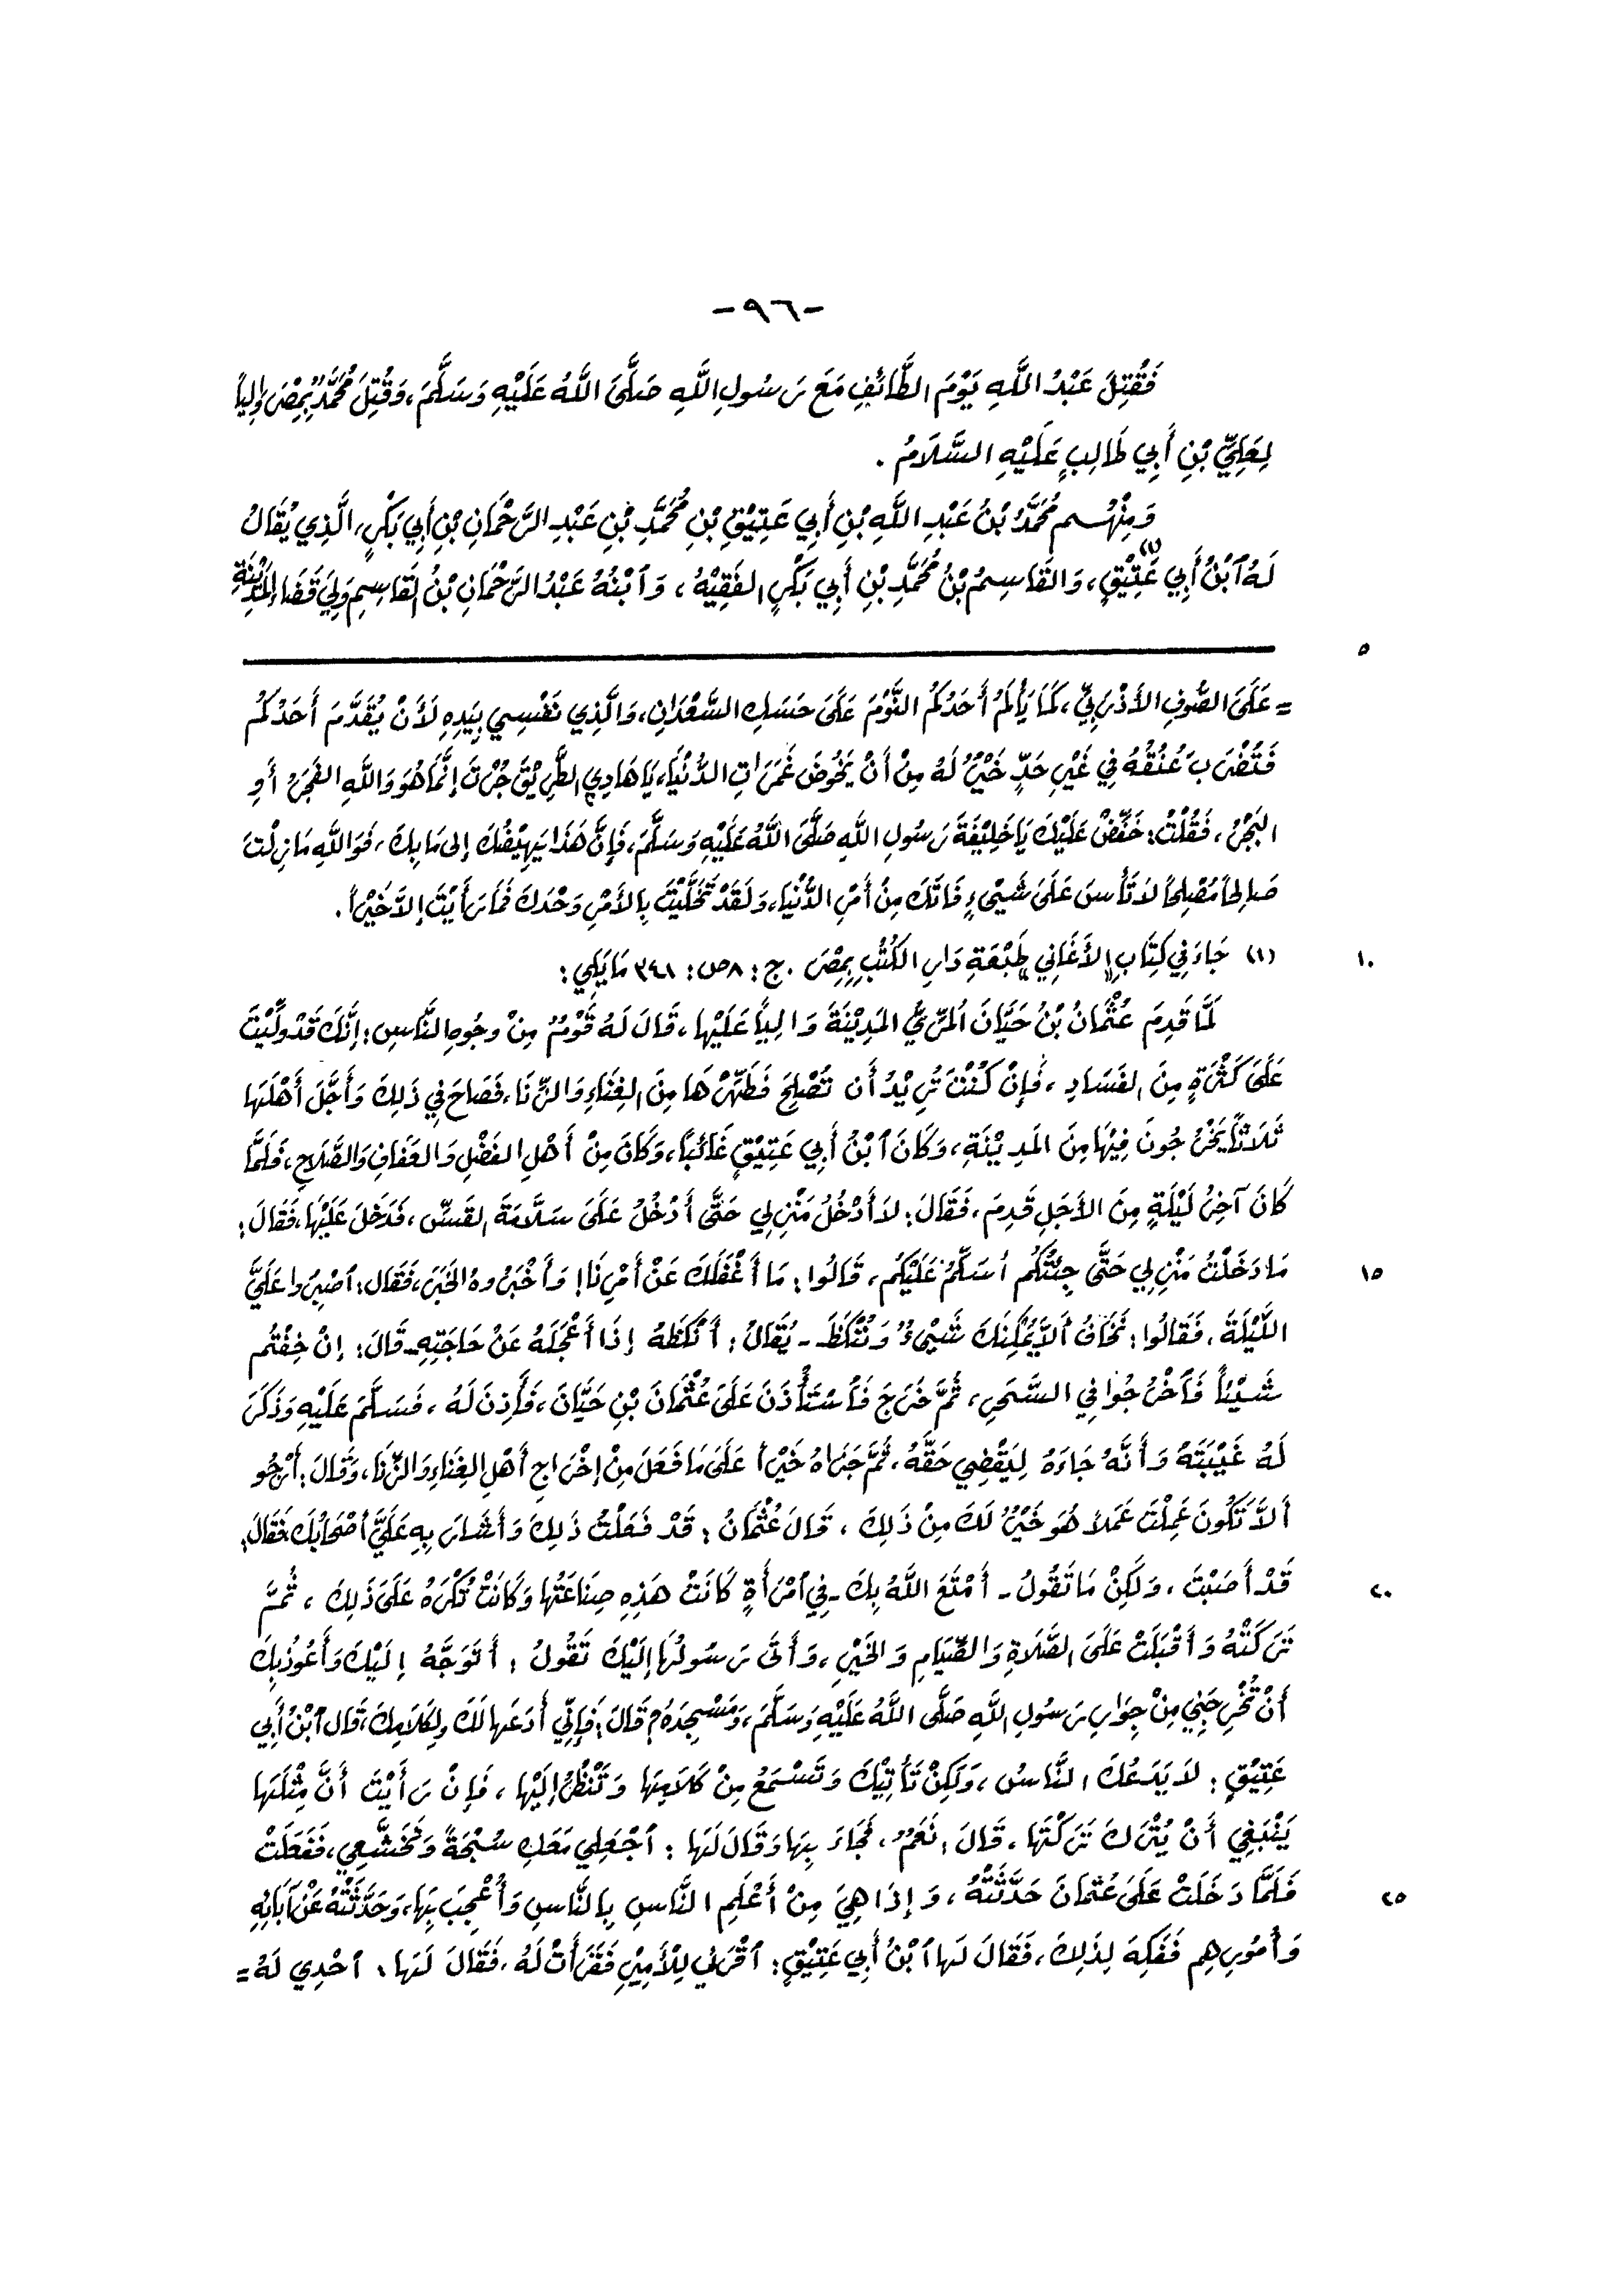 -٩٦-
فَقُتِلَ عَبْدُ اللَّهِ يَوْمَ الطَّائِفِ مَعَ رَسُولِ اللَّهِ صَلَّى اللَّهُ عَلَيْهِ وَسَلَّمَ، وَقُتِلَ مُحَمَّدٌ بِمِصْرَ وَالِياً
لِعَلِيِّ بْنِ أَبِي طَالِبٍ عَلَيْهِ السَّلَامُ .
وَمِنْهُم مُحَمَّدُ بْنُ عَبْدِ اللَّهِ بْنِ أَبِي عَتِيْقِ بْنِ مُحَمَّدِ بْنِ عَبْدِ الرَّحْمَانِ بْنِ أَبِي بَكْرٍ، الَّذِي يُقَالُ
لَهُ ٱبْنُ أَبِي عَتِيْقٍ(١)، وَالقَاسِمُ بْنُ مُحَمَّدِ بْنِ أَبِي بَكْرٍ الفَقِيْهُ، وَٱبْنُهُ عَبْدُ الرَّحْمَانِ بْنُ القَاسِمِ وَلِيَ قَضَاءَ المَدِيْنَةِ
٥
= عَلَى الصُّوفِ الأَذْرَبِيِّ، كَمَا يَأْلَمُ أَحَدُكُمُ النَّوْمَ عَلَى حَسَكِ السَّعْدَانِ، وَالَّذِي نَفْسِي بِيَدِهِ لَأَنْ يُقَدَّمَ أَحَدُكُمْ
فَتُضْرَبَ عُنُقُهُ فِي غَيْرِ حَدٍّ خَيْرٌ لَهُ مِنْ أَنْ يَخُوضَ غَمَرَاتِ الدُّنْيَا، يَا هَادِيَ الطَّرِيْقِ جُرْتَ إِنَّمَا هُوَ وَاللَّهِ الفَجْرُ أَوِ
البَجْرُ، فَقُلْتُ: خَفِّضْ عَلَيْكَ يَا خَلِيْفَةَ رَسُولِ اللَّهِ صَلَّى اللَّهُ عَلَيْهِ وَسَلَّمَ، فَإِنَّ هَذَا يَهِيْضُكَ إِلى مَا بِكَ، فَوَاللَّهِ مَا زِلْتَ
صَالِحاً مُصْلِحاً لاَ تَأْسَ عَلَى شَيْىءٍ فَاتَكَ مِنْ أَمْرِ الدُّنْيَا، وَلَقَدْ تَخَلَّيْتَ بِالأَمْرِ وَحْدَكَ فَمَا رَأَيْتَ إِلاَّ خَيْراً.
١٠ (١) جَاءَ فِي كِتَابِ «الأَغَانِي» طَبْعَةِ دَارِ الكُتُبِ بِمِصْرَ . ج: ٨ ص: ٣٤١ مَا يَلِي:
لَمَّا قَدِمَ عُثْمَانُ بْنُ حَيَّانَ المُرِّيُّ المَدِيْنَةَ وَالِياً عَلَيْها، قَالَ لَهُ قَوْمٌ مِنْ وجُوهِ النَّاسِ: إِنَّكَ قَدْ وَلِّيْتَ
عَلَى كَثْرَةٍ مِنَ الفَسَادِ، فَإِنْ كُنْتَ تُرِيْدُ أَن تُصْلِحَ فَطَهِّرْهَا مِنَ الغِنَاءِ وَالزِّنَا، فَصَاحَ فِي ذَلِكَ وَأَجَّلَ أَهْلَهَا
ثَلاَثاً يَخْرُجُونَ فِيْهَا مِنَ المَدِيْنَةِ، وَكَانَ ٱبْنُ أَبِي عَتِيْقٍ غَائباً، وَكَانَ مِنْ أَهْلِ الفَضْلِ وَالعَفَافِ وَالصَّلاَحِ، فَلَمَّا
كَانَ آخِرُ لَيْلَةٍ مِنَ الأَجَلِ قَدِمَ، فَقَالَ: لاَ أَدْخُلُ مَنْزِلِي حَتَّى أَدْخُلَ عَلَى سَلاَّمَةَ القَسِّ، فَدَخَلَ عَلَيْهَا، فَقَالَ:
١٥ مَا دَخَلْتُ مَنْزِلِي حَتَّى جِئْتُكُم أُسَلِّمُ عَلَيْكُم، قَالُوا: مَا أَغْفَلَكَ عَنْ أَمْرِنَا! وَأَخْبَرُوهُ الخَبَرَ، فَقَالَ: ٱصْبِرُوا عَلَيَّ
اللَّيْلَةَ، فَقَالُوا: نَخَافُ أَلاَّ يُمْكِنَكَ شَيْىءٌ وَنُنْكَظَ - يُقَالُ: أَنْكَظَهُ إِذَا أَعْجَلَهُ عَنْ حَاجَتِهِ - قَالَ: إِنْ خِفْتُم
شَيْئاً فَٱخْرُجُوا فِي السَّحَرِ، ثُمَّ خَرَجَ فَٱسْتَأْذَنَ عَلَى عُثْمَانَ بْنِ حَيَّانَ، فَأَذِنَ لَهُ، فَسَلَّمَ عَلَيْهِ وَذَكَرَ
لَهُ غَيْبَتَهُ وَأَنَّهُ جَاءَهُ لِيَقْضِيَ حَقَّهُ، ثُمَّ جَزَاهُ خَيْراً عَلَى مَا فَعَلَ مِنْ إِخْرَاجِ أَهْلِ الغِنَاءِ وَالزِّنَا، وَقَالَ: أَرْجُو
أَلاَّ تَكُونَ عَمِلْتَ عَمَلاً هُوَ خَيْرٌ لَكَ مِنْ ذَلِكَ، قَالَ عُثْمَانُ: قَدْ فَعَلْتُ ذَلِكَ وَأَشَارَ بِهِ عَلَيَّ أَصْحَابُكَ، فَقَالَ:
٢٠ قَدْ أَصَبْتَ، وَلَكِنْ مَا تَقُولُ - أَمْتَعَ اللَّهُ بِكَ - فِي ٱمْرَأَةٍ كَانَتْ هَذِهِ صِنَاعَتُها وَكَانَتْ تُكْرَهُ عَلَى ذَلِكَ، ثُمَّ
تَرَكَتْهُ وَأَقْبَلَتْ عَلَى الصَّلاَةِ وَالصِّيَامِ وَالخَيْرِ، وَأَتَى رَسُولُهَا إِلَيْكَ تَقُولُ: أَتَوَجَّهُ إِلَيْكَ وَأَعُوذُ بِكَ
أَنْ تُخْرِجَنِي مِنْ جِوَارِ رَسُولِ اللَّهِ صَلَّى اللَّهُ عَلَيْهِ وَسَلَّمَ، وَمَسْجِدِهُ؟ قَالَ: فَإِنِّي أَدَعُها لَكَ وَلِكَلاَمِكَ، قَالَ ٱبْنُ أَبِي
عَتِيْقٍ: لاَ يَدَعُكَ النَّاسُ، وَلَكِنْ تَأْتِيْكَ وَتَسْمَعُ مِنْ كَلاَمِهَا وَتَنْظُرُ إِلَيْها، فَإِنْ رَأَيْتَ أَنَّ مِثْلَهَا
يَنْبَغِي أَنْ يُتْرَكَ تَرَكْتَها، قَالَ: نَعَمْ، فَجَاءَ بِهَا وَقَالَ لَهَا: ٱجْعَلِي مَعَكِ سُبْحَةً وَتَخَشَّعِي، فَفَعَلَتْ
٢٥ فَلَمَّا دَخَلَتْ عَلَى عُثْمَانَ حَدَّثَتْهُ، وَإِذَا هِيَ مِنْ أَعْلَمِ النَّاسِ بِالنَّاسِ وَأُعْجِبَ بِهَا، وَحَدَّثَتْهُ عَنْ آبَائِهِ
وَأُمُورِهِم فَفَكِهَ لِذَلِكَ، فَقَالَ لَها ٱبْنُ أَبِي عَتِيْقٍ: ٱقْرَئِي لِلْأَمِيْرِ فَقَرَأَتْ لَهُ، فَقَالَ لَهَا: ٱحْدِي لَهُ =